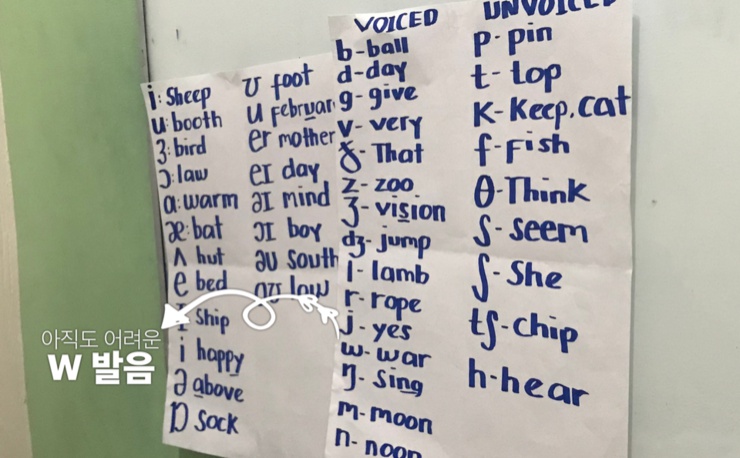 i: Sheep
u: booth
ɜ: bird
ɔ: law
ɑ: warm
æ: bat
ʌ hut
e bed
ɪ Ship
i happy
ə above
ɒ Sock
ʊ foot
u Februar
er mother
eɪ day
əɪ mind
ɔɪ boy
əʊ South
low
VOICED
b-ball
d-day
g-give
v-very
ð-That
z-zoo
ʒ-vision
dʒ-jump
l-lamb
r-rope
j-yes
w-war
ŋ-sing
m-moon
n-noon
UNVOICED
p-pin
t-top
K-Keep.cat
f-Fish
θ-Think
S-seem
ʃ-She
tʃ-chip
h-hear
아직도 어려운
W 발음